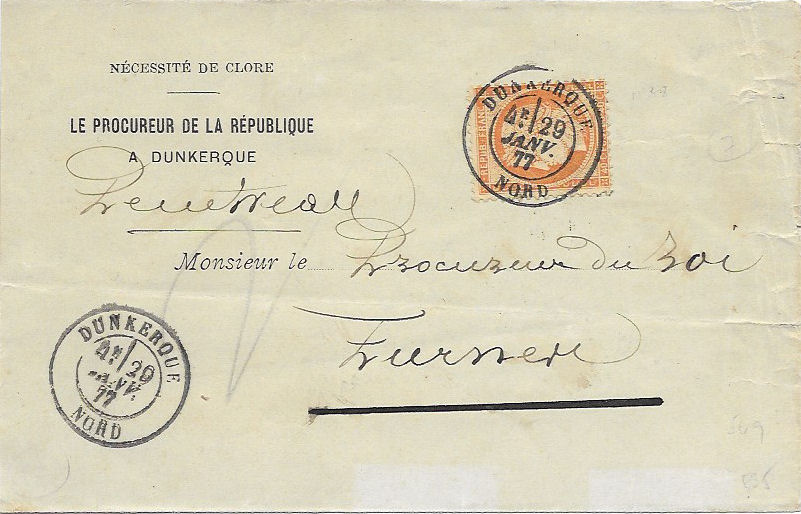 NÉCESSITÉ DE CLORE
LE PROCUREUR DE LA RÉPUBLIQUE
A DUNKERQUE
DUNKERQUE
4E 29
JANV.
77
NORD
REPUB. FRANC
Monsieur le Procureur du Roi
Furnes
DUNKERQUE
4E 29
JANV.
77
NORD
569